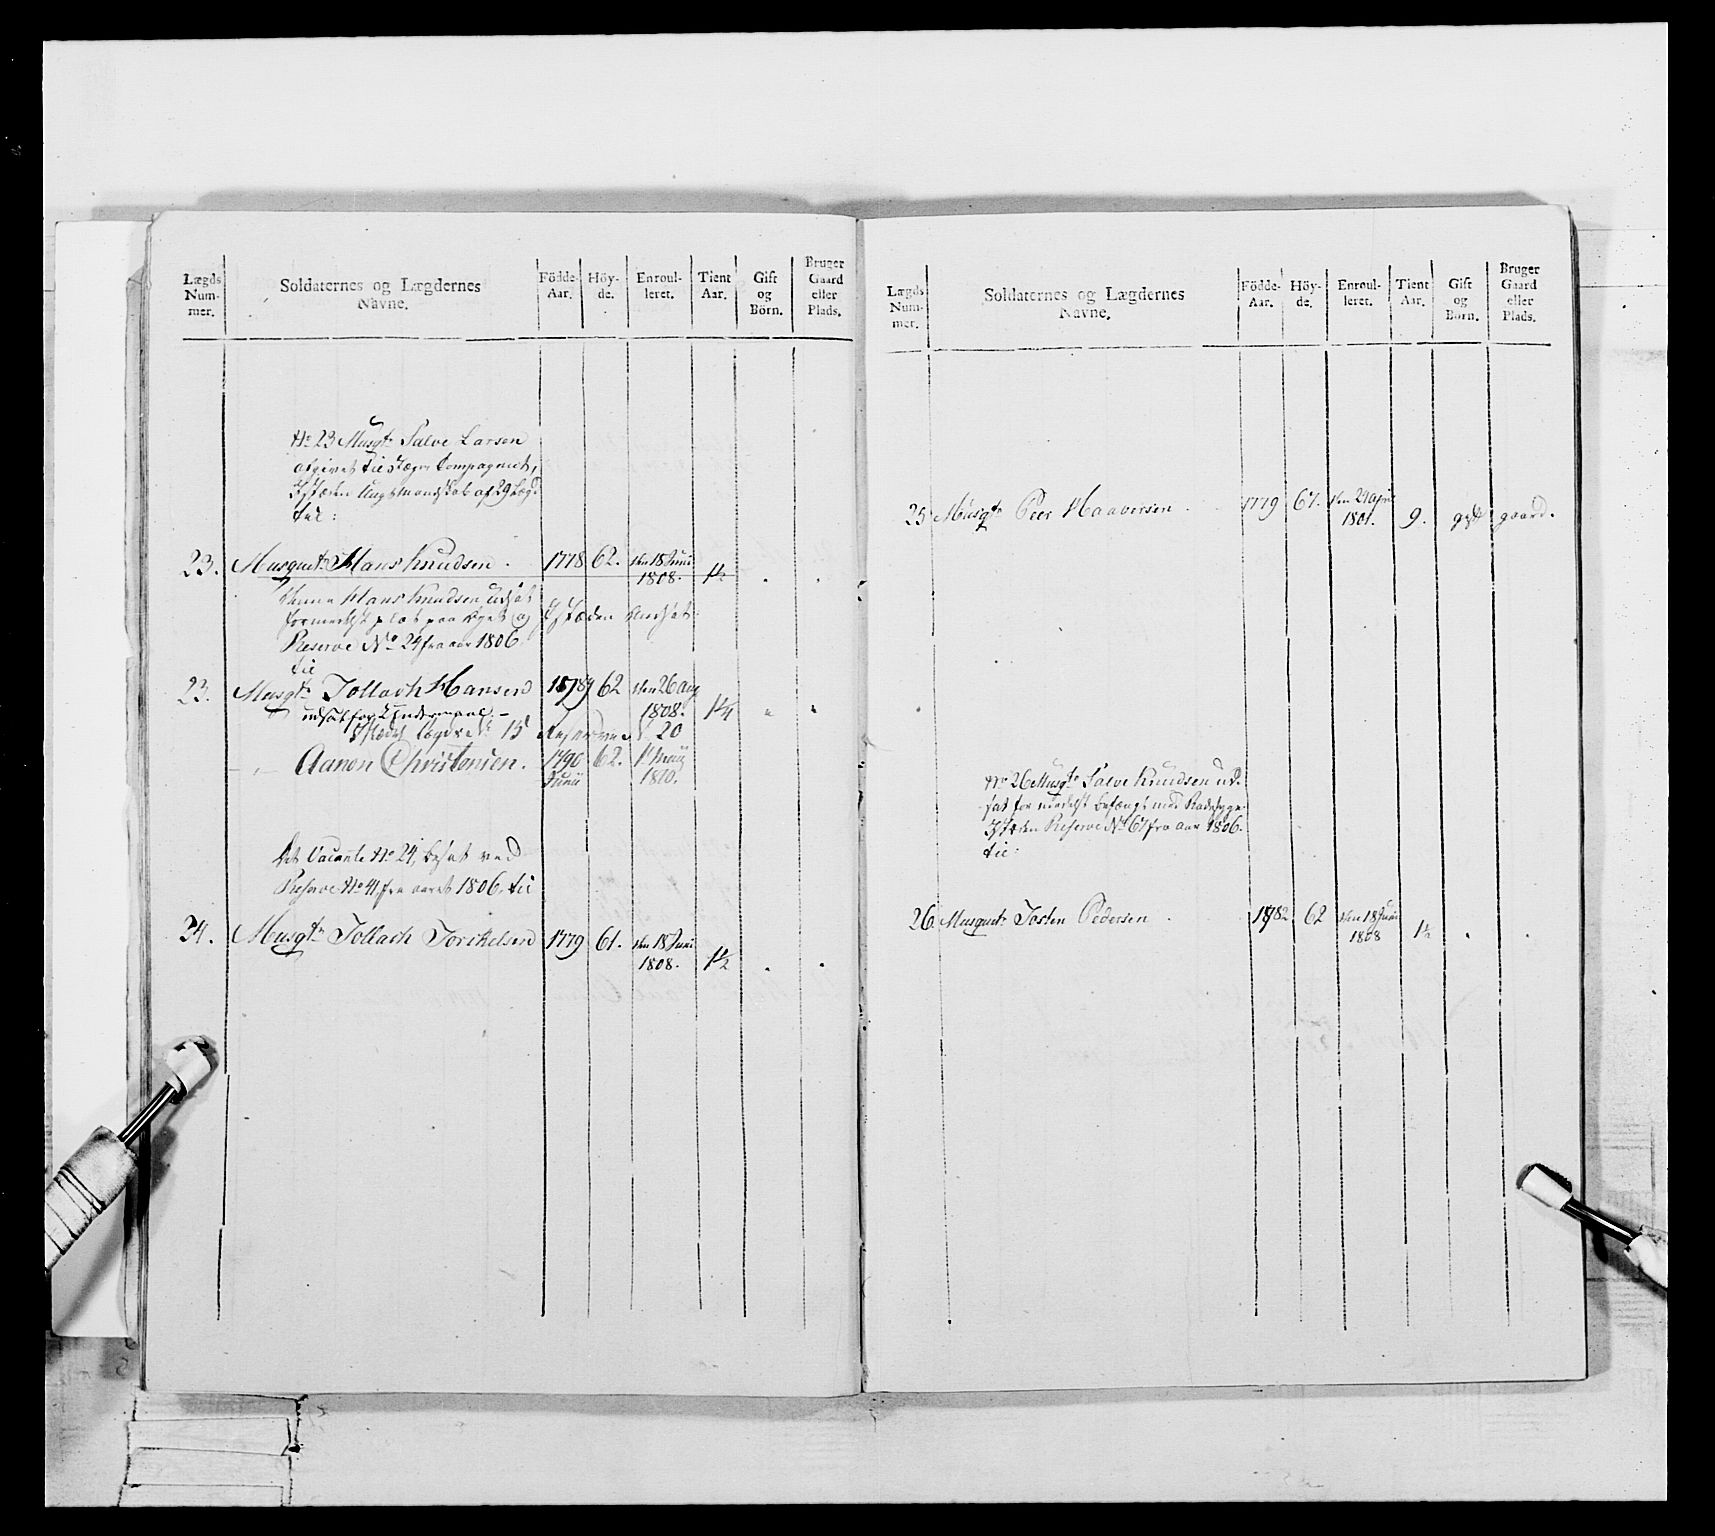 Lægds Num- mer.
Soldaternes og Lægdernes Navne.
Födde- Aar.
Höy- de.
Enroul- leret.
Tient Aar.
Gift og Börn.
Bruger Gaard eller Plads.
No 23 Musqt. Salve Larsen
afgivet til Jæger Compagniet,
Istæden Ungt mandskab af 29 Lægd
til:
23. Musquet. Hans Knudsen. 1778 62. den 18 Junii 1808. 1½
Hans Knudsen udsat
Istæden
Reserve No 24 fra aar 1806
til
23. Musqt. Tollach Hansen 1789 62 den 26 Aug 1808. 1¼
udsat for Undermaal. -
15 Reserve 20
Aanon Christensen. 1790 Junii 62. 1810.
Det Vacante No 24, besat ved
Reserve No 41 fra aaret 1806. til
24. Musqt. Tollach Torkelsen 1779 61. den 18 Juni 1808. 1½
Lægds Num- mer.
Soldaternes og Lægdernes Navne.
Födde- Aar.
Höy- de.
Enroul- leret.
Tient Aar.
Gift og Börn.
Bruger Gaard eller Plads.
25 Musqt. Peer Haaversen 1779 61. den 29 Apr 1801. 9. gift gaard.
No 26 Musqt. Salve Knudsen ud-
sat for befængt med Radesyge
Istæden Reserve No 67 fra aar 1806.
til:
26. Musquet. Josten Pedersen 1782 62 den 18 Juni 1808 1½